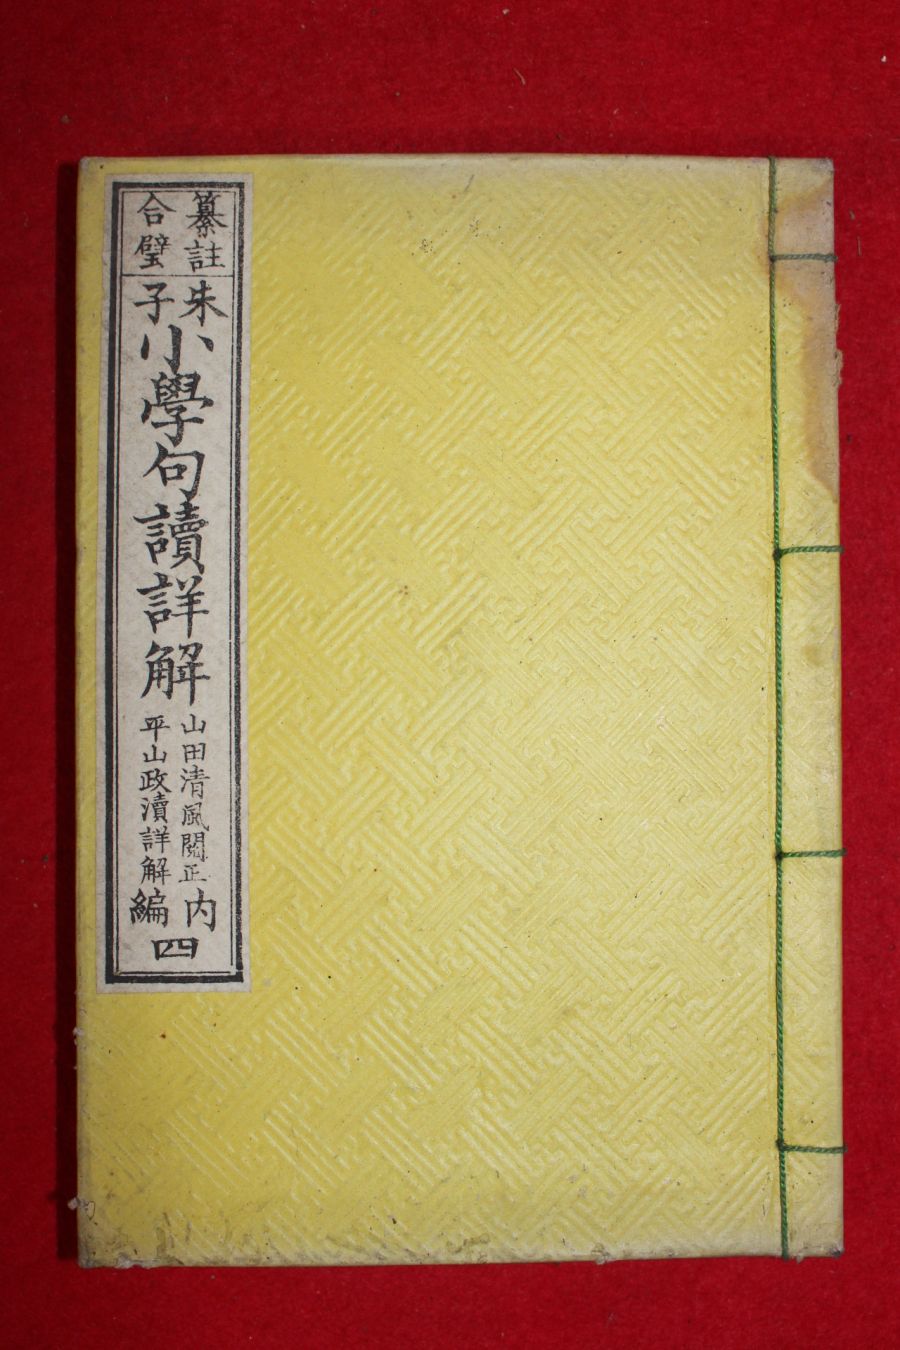 纂註
合璧
朱子
小學句讀詳解
山田清風閱正
平山政瀆詳解
內編
四